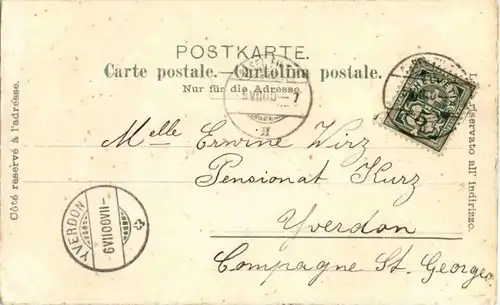 POSTKARTE.
Carte postale.—Cartolina postale.
Nur für die Adresse.
5 VII 00 - 7
HELVETIA
5
Côté reservé à l'adresse.
Lato riservato all' indirizzo.
Melle Erwine Wirz
Pensionat Kurz
Yverdon
Compagne St. Georges
YVERDON
6 VII 00 VII -